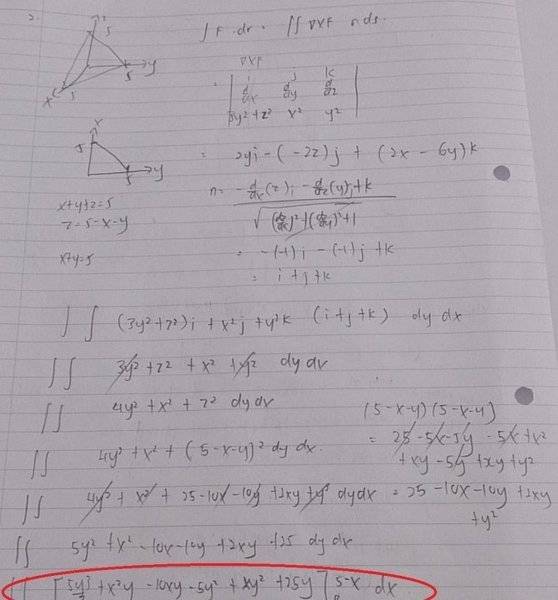 2.
z
5
y
5
x 5
∫ F·dr = ∬ ∇×F n ds
∇×F
| i j k |
| d/dx d/dy d/dz |
| 3y²+z² x² y² |
x
5
y
5
= 2yi - (-2z)j + (2x - 6y)k
x+y+z=5
z=5-x-y
x+y=5
n = - d/dx (z)i - d/dz (y)j + k
√((dz/dx)² + (dz/dy)² + 1
= -(-1)i - (-1)j + k
= i + j + k
∬ (3y²+z²)i + x²j + y²k (i+j+k) dy dx
∬ 3y² + z² + x² + y² dy dx
∬ 4y² + x² + z² dy dx
(5-x-y)(5-x-y)
∬ 4y² + x² + (5-x-y)² dy dx
= 25 - 5x - 5y - 5x + x²
+xy - 5y + xy + y²
∬ 4y² + x² + 25 - 10x - 10y + 2xy + y² dy dx
= 25 - 10x - 10y + 2xy
+ y²
∬ 5y² + x² - 10x - 10y + 2xy + 25 dy dx
[5y³ + x²y - 10xy - 5y² + xy² + 25y] 5-x dx